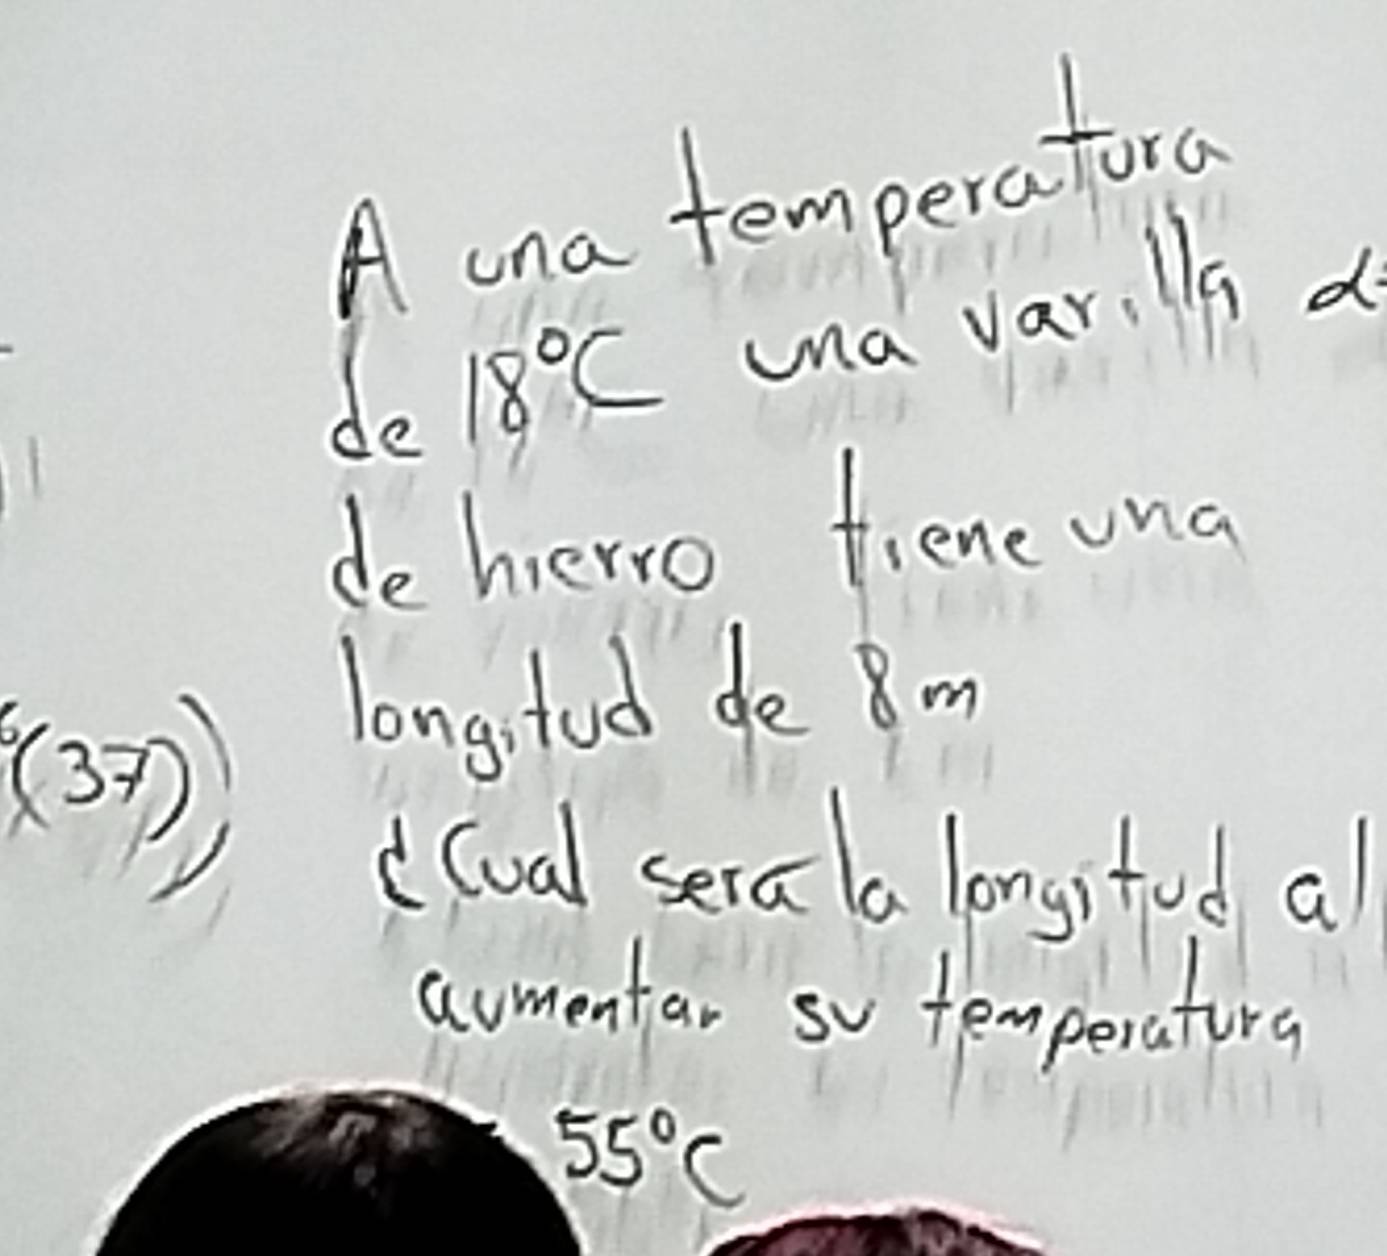 A una temperatura
de 18°C una varilla α=
de hierro tiene una
longitud de 8m
6(37))
¿Cual sera la longitud al
aumentar su temperatura
55°C